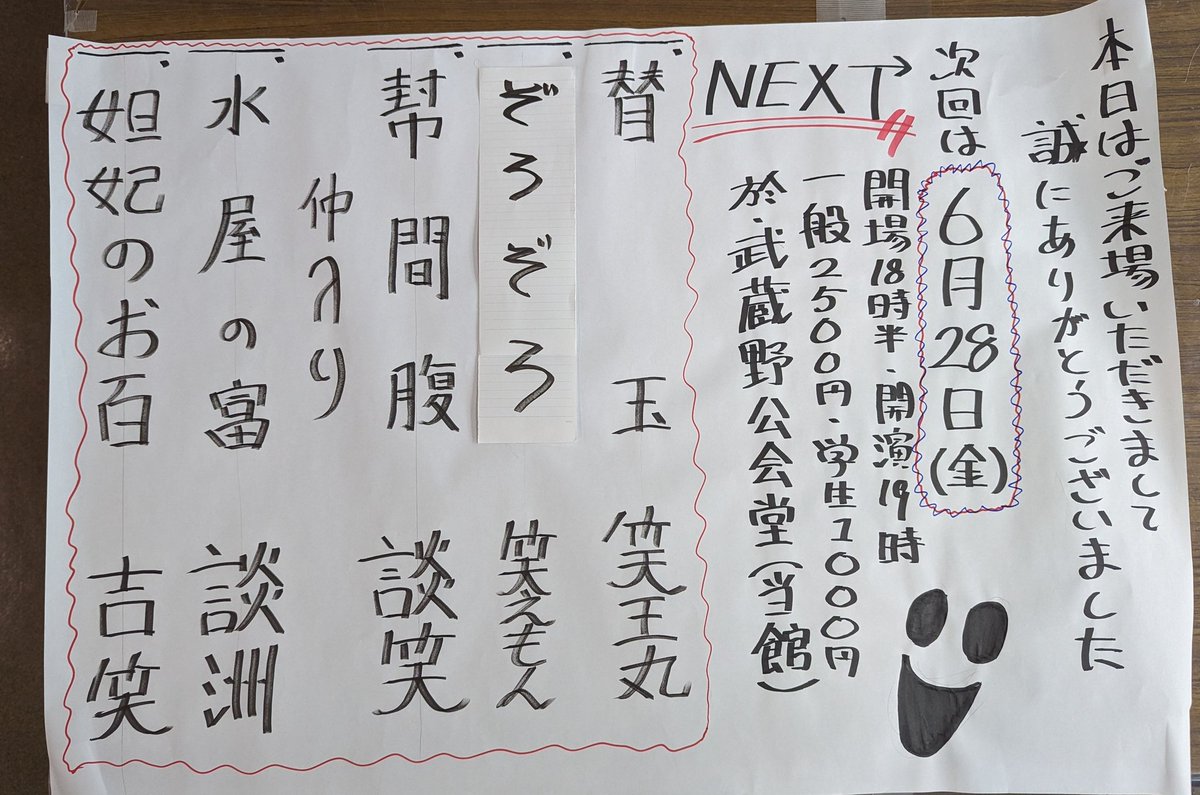 本日はご来場いただきまして
誠にありがとうございました
次回は 6月28日(金)
開場18時半・開演19時
一般2500円・学生1000円
於・武蔵野公会堂(当館)
NEXT
一、替玉 笑王丸
一、ぞろぞろ 笑えもん
一、幇間腹 談笑
仲入り
一、水屋の富 談洲
一、妲妃のお百 吉笑